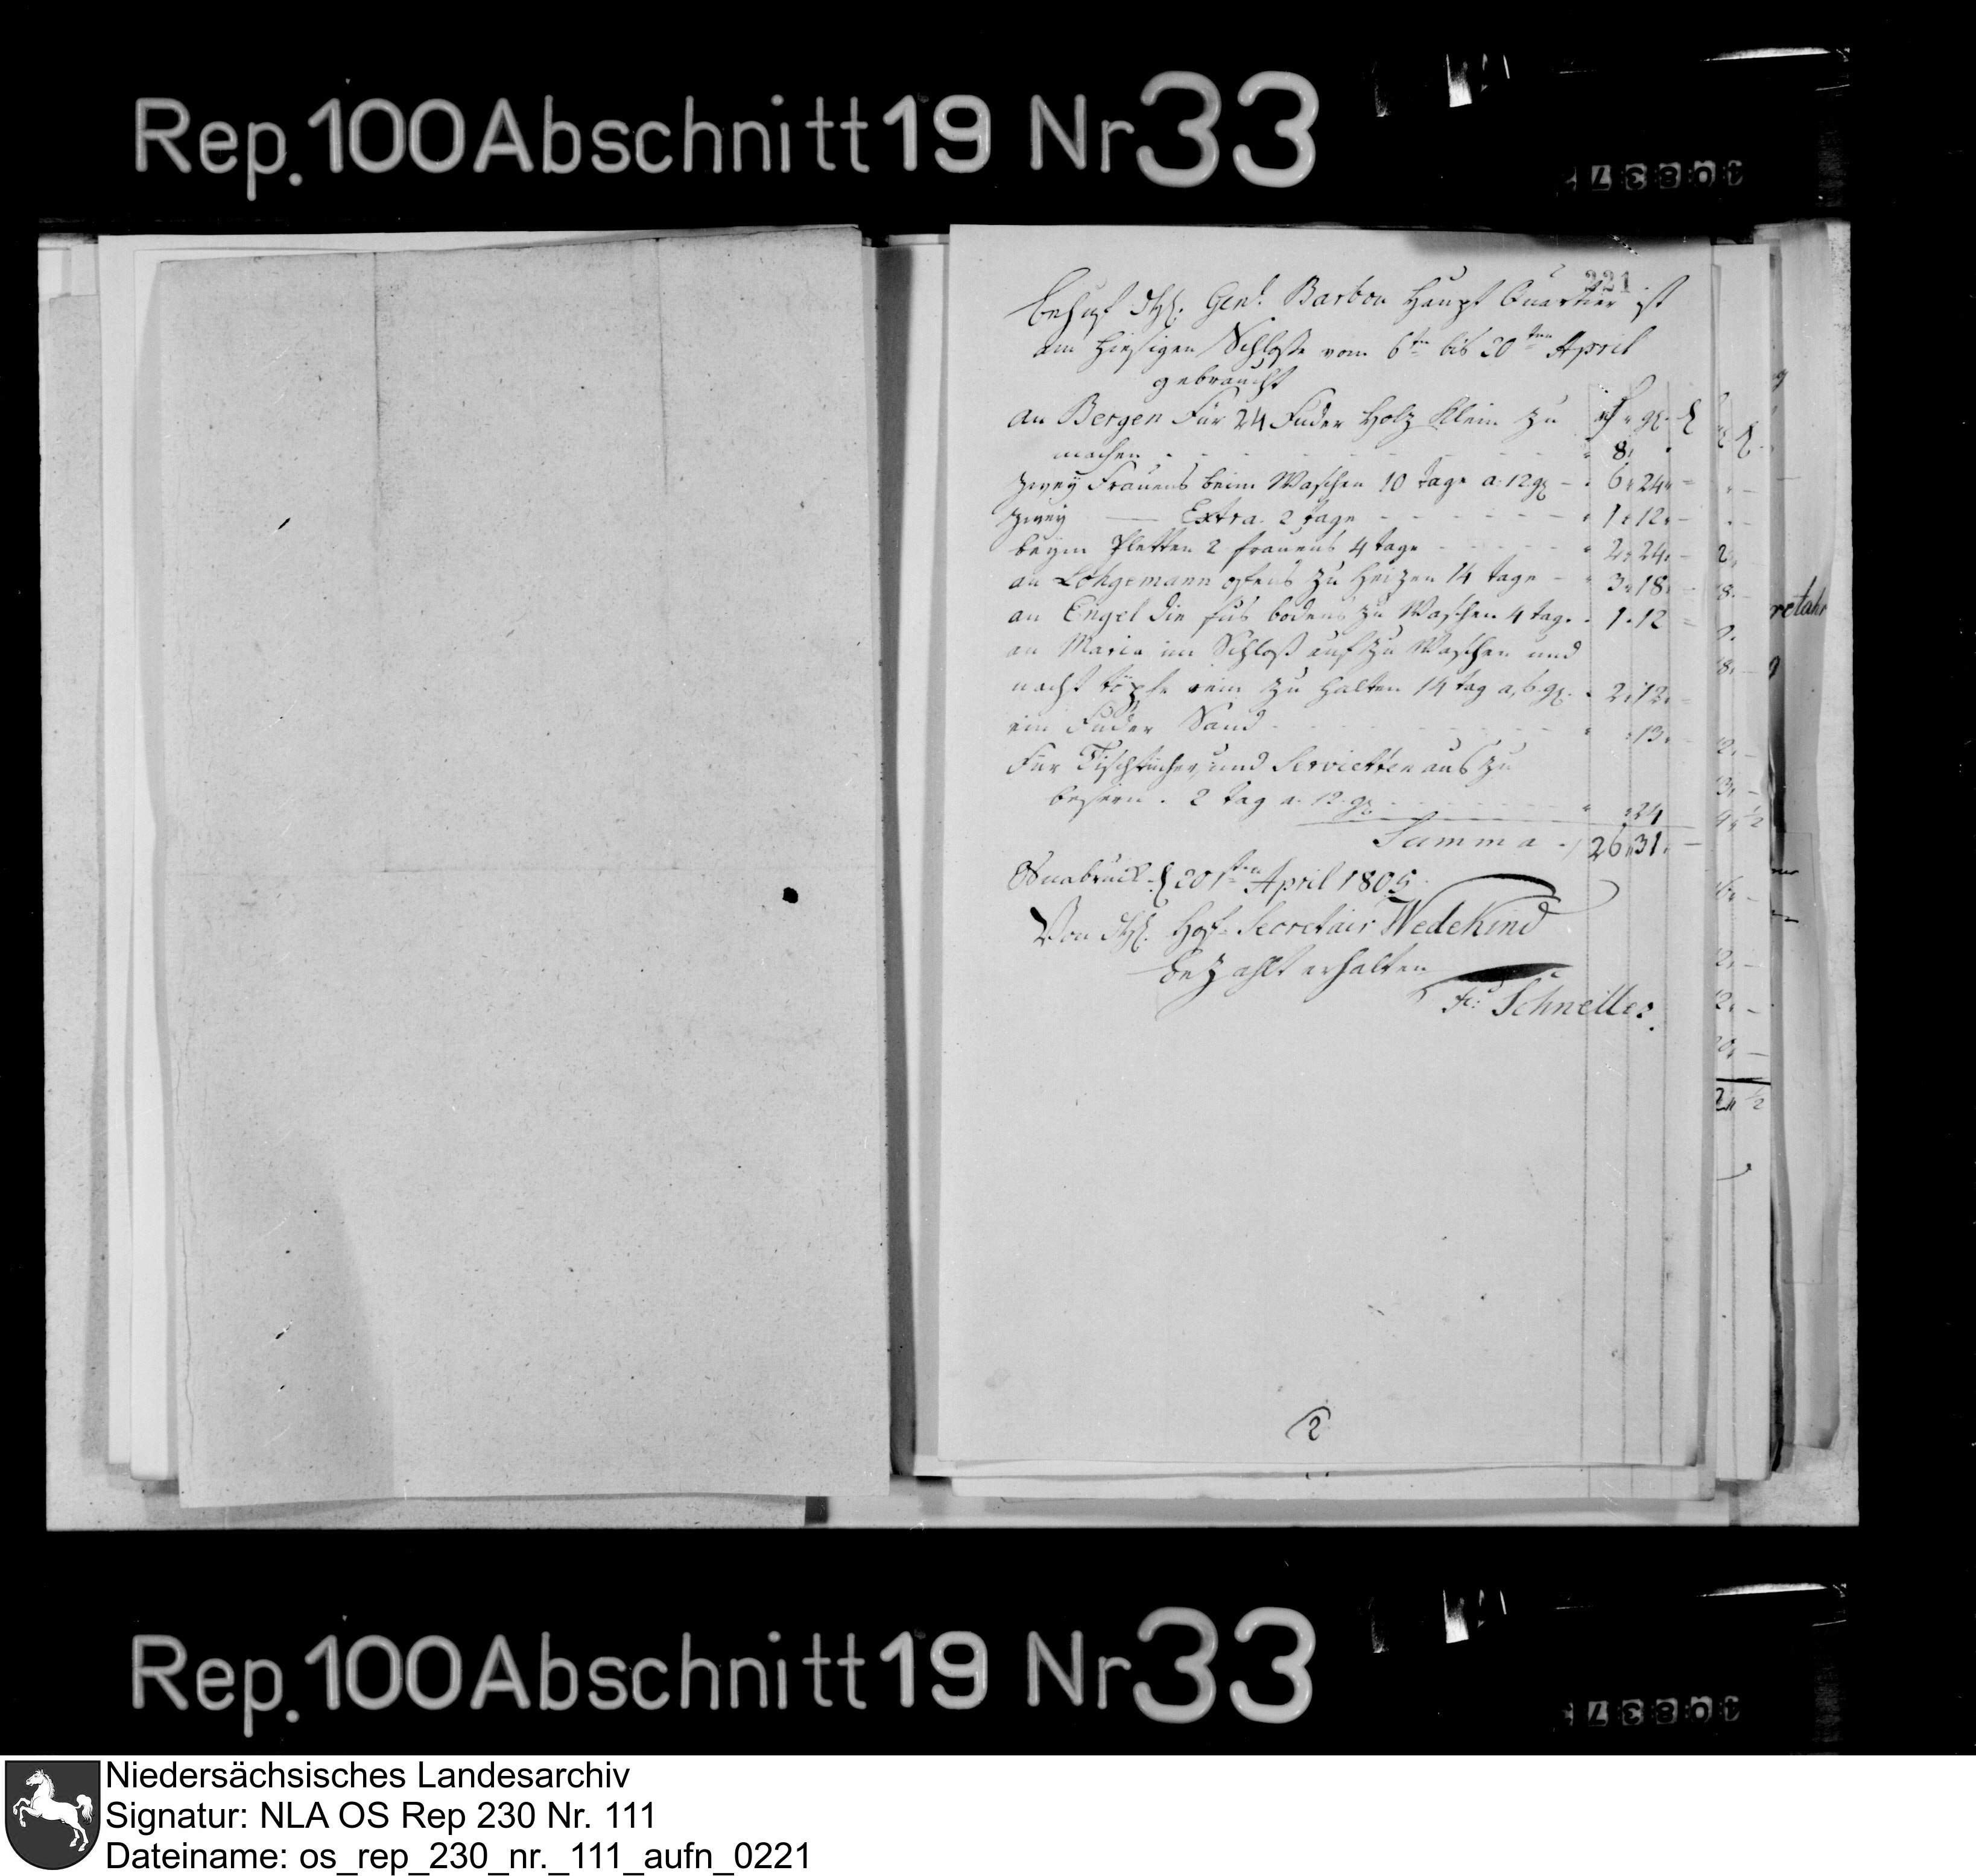 Rep. 100 Abschnitt 19 Nr 33
221
Behuf H. Genl. Barbou Haupt Quartier ist
am hiesigen Schloße vom 6tn bis 20ten April
gebraucht
an Bergen Für 24 Fuder Holz Klein zu
machen - - - 8,
zwey Frauens beim Waschen 10 tage a 12 gl - 6 " 24 "
zwey — Extra. 2 tage - - - 1 " 12 "
beym Pletten 2 frauens 4 tage - - - 2 " 24 "
an Löhgemann ofens zu Heizen 14 tage - 3 " 18 "
an Engel die fus bodens zu Waschen 4 tag. 1 " 12
an Maria im Schloß auf zu Waschen und
nacht töpfe rein zu halten 14 tag a, 6 gl. 2 " 12 "
ein Fuder Sand - - - " 13 "
Für Tischtücher und Servietten aus zu
bessern . 2 tag a. 12 gl - - - " 24
Summa - 26 " 31 "
Osnabrück d 20ten April 1805
Von H. Hof-Secretair Wedekind
bezahlt erhalten
Fr: Schneller
2
Rep. 100 Abschnitt 19 Nr 33
Niedersächsisches Landesarchiv
Signatur: NLA OS Rep 230 Nr. 111
Dateiname: os_rep_230_nr._111_aufn_0221